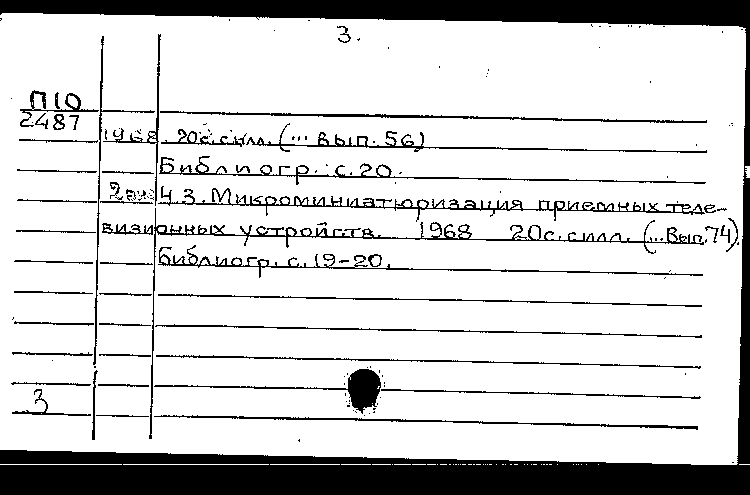 3.
П10
2487
1968. 20с. с илл. (... Вып. 56)
Библиогр.: с. 20.
2 экз Ч. 3. Микроминиатюризация приемных теле-
визионных устройств. 1968 20с. с илл. (... Вып. 74).
Библиогр. с. 19-20.
3